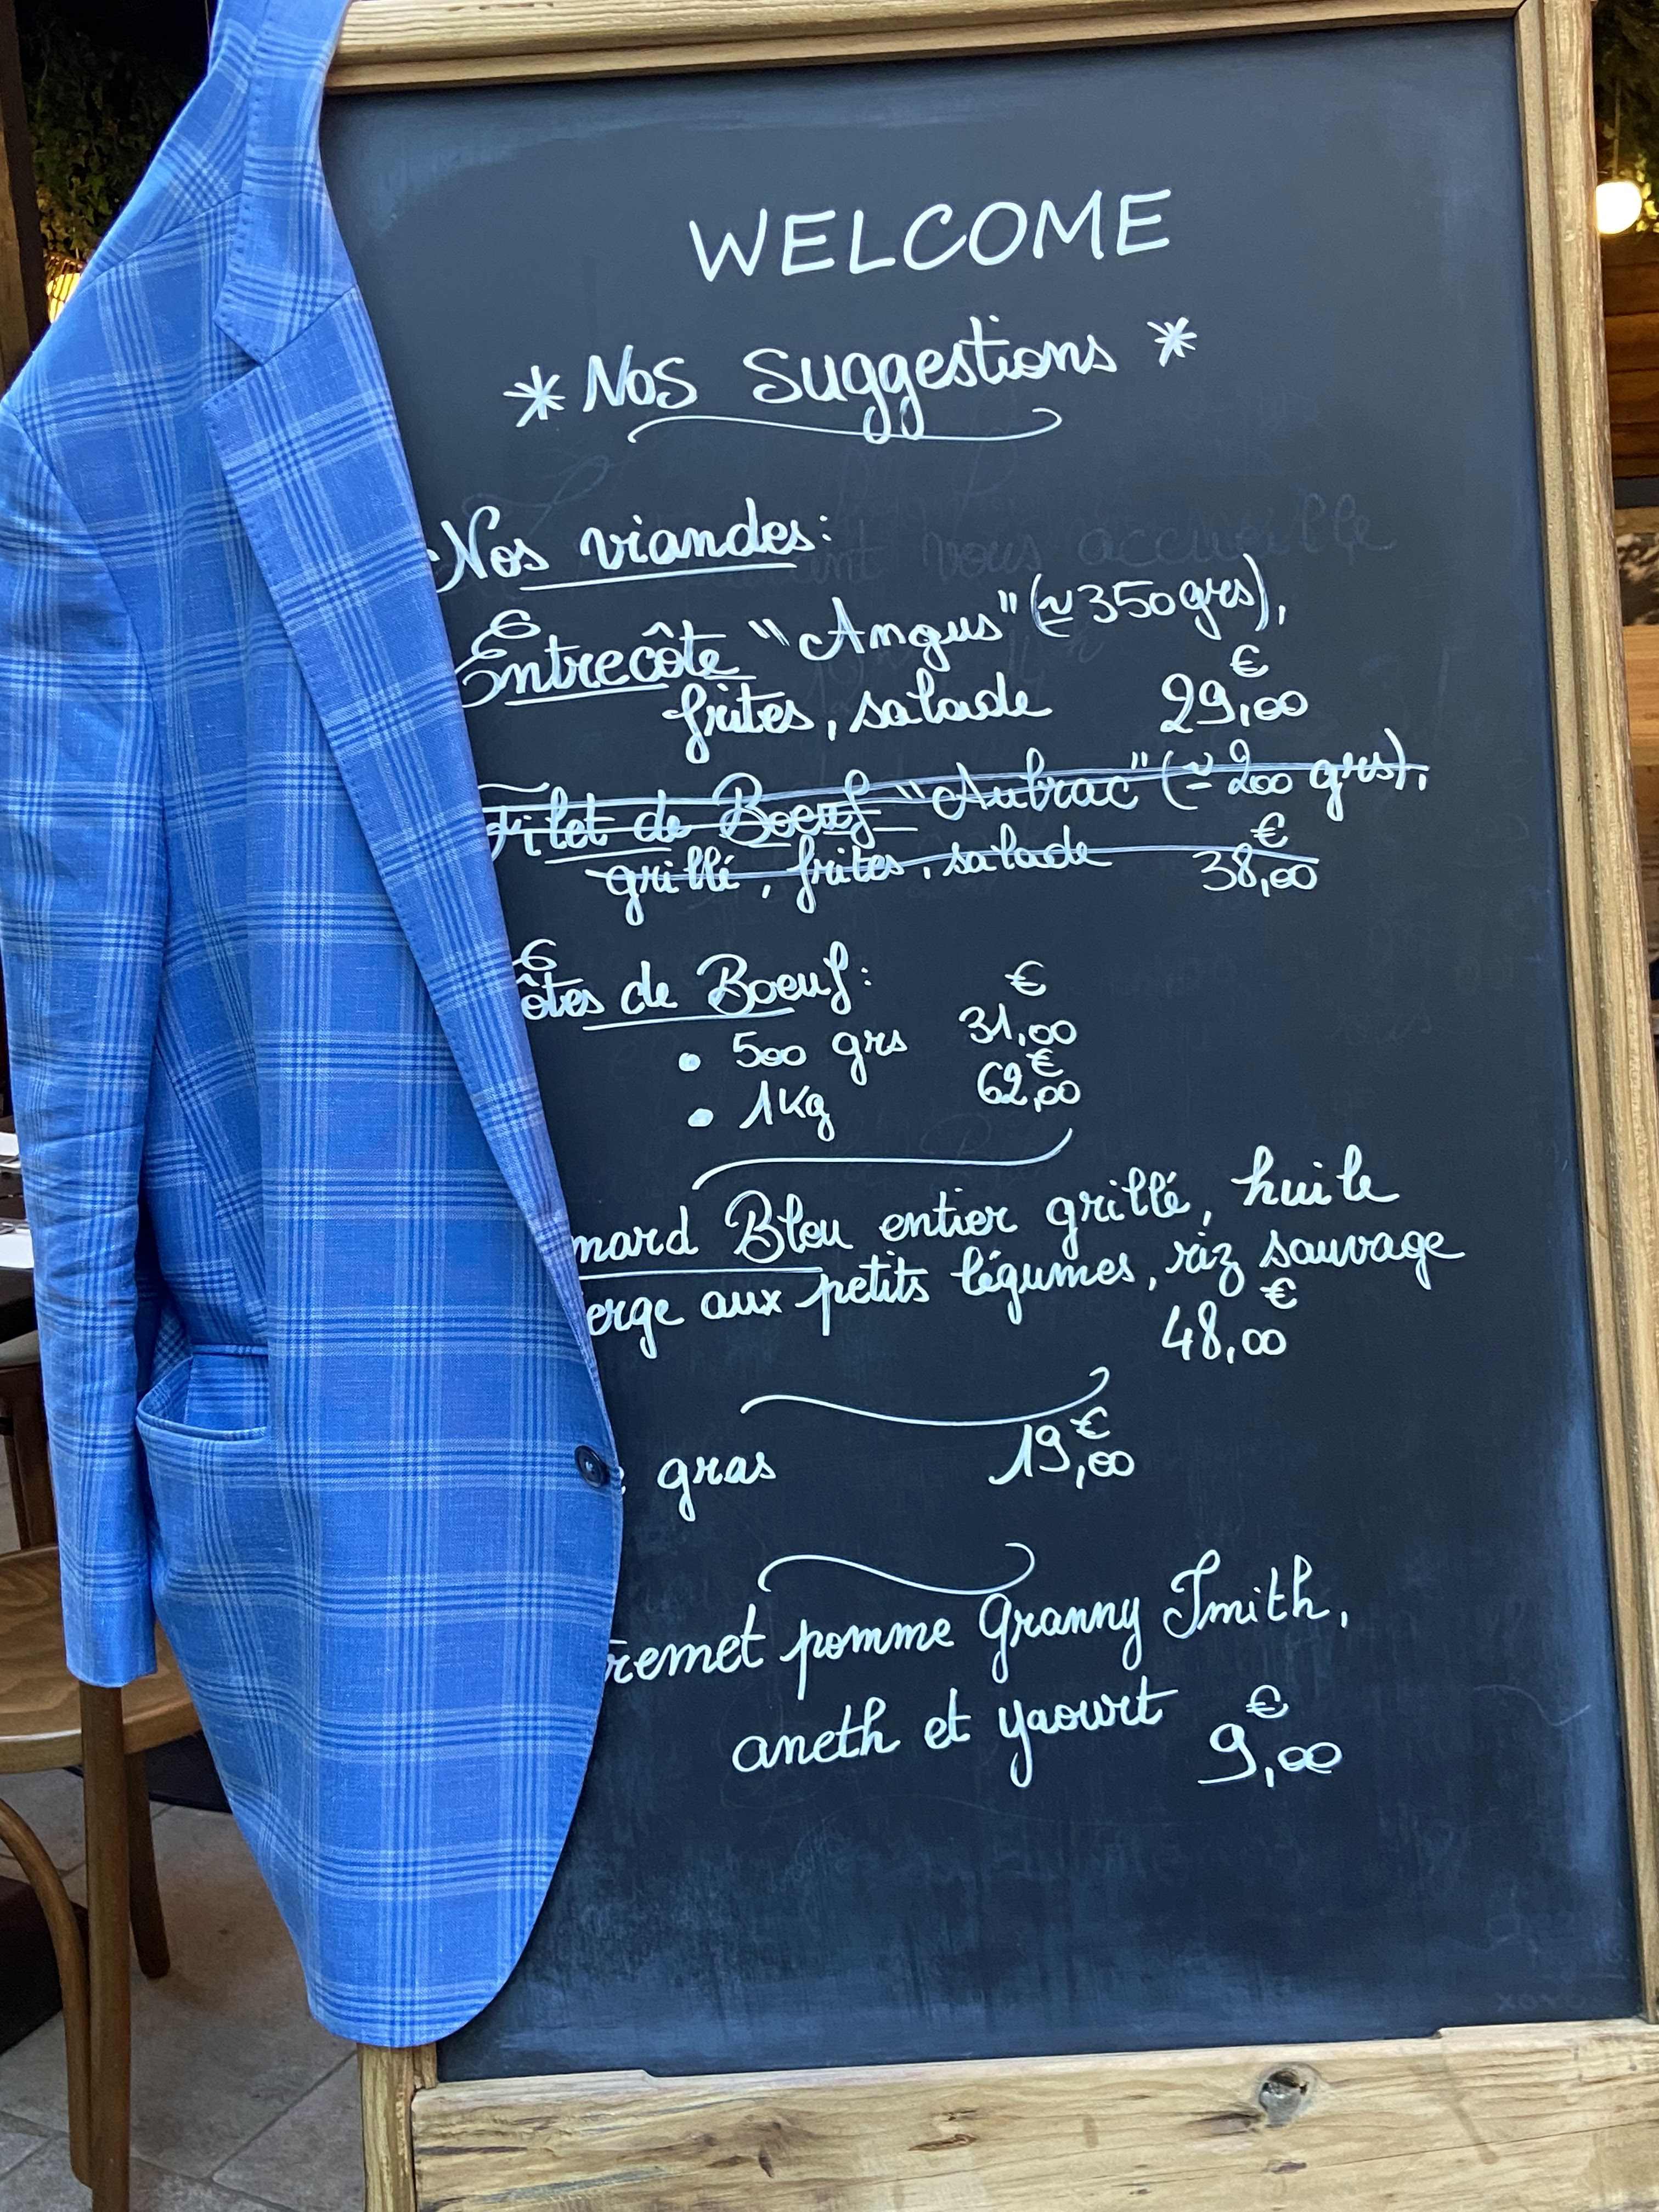 WELCOME
* Nos suggestions *
Nos viandes:
Entrecôte "Angus" (≃ 350 grs),
frites, salade 29,00 €
Filet de Boeuf "Aubrac" (≃ 200 grs),
grillé, frites, salade 38,00 €
ôtes de Boeuf:
• 500 grs 31,00 €
• 1Kg 62,00 €
mard Bleu entier grillé, huile
erge aux petits légumes, riz sauvage
48,00 €
gras 19,00 €
remet pomme Granny Smith,
aneth et yaourt 9,00 €